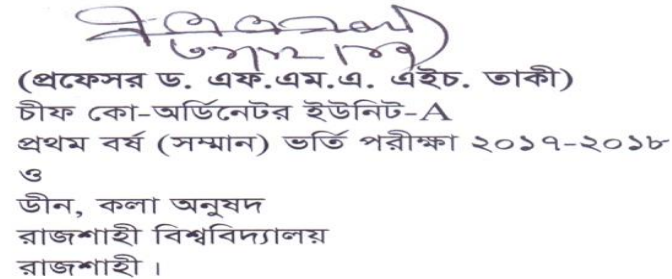 (প্রফেসর ড. এফ.এম.এ. এইচ. তাকী)
চীফ কো-অর্ডিনেটর ইউনিট-A
প্রথম বর্ষ (সম্মান) ভর্তি পরীক্ষা ২০১৭-২০১৮
ও
ডীন, কলা অনুষদ
রাজশাহী বিশ্ববিদ্যালয়
রাজশাহী।